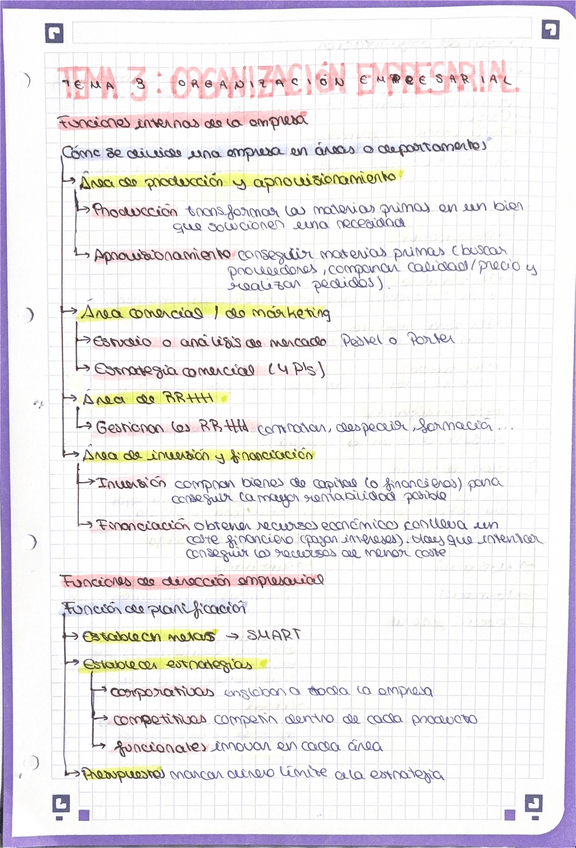 TEMA 3: ORGANIZACIÓN EMPRESARIAL
Funciones internas de la empresa
Cómo se divide una empresa en áreas o departamentos
Área de producción y aprovisionamiento
Producción transformar las materias primas en un bien
que solucione una necesidad
Aprovisionamiento conseguir materias primas (buscar
proveedores, comparar calidad/precio y
realizar pedidos).
Área comercial / de márketing
Estudio o análisis de mercado Pestel o Porter
Estrategia comercial (4 P's)
Área de RRHH
Gestionar los RRHH contratar, despedir, formación...
Área de inversión y financiación
Inversión comprar bienes de capital (o financieros) para
conseguir la mayor rentabilidad posible
Financiación obtener recursos económicos conlleva un
coste financiero (pagar intereses). Hay que intentar
conseguir los recursos de menor coste
Funciones de dirección empresarial
Función de planificación
Establecer metas → SMART
Establecer estrategias
corporativas engloban a toda la empresa
competitivas competir dentro de cada producto
funcionales innovar en cada área
Presupuestos marcar dinero límite a la estrategia